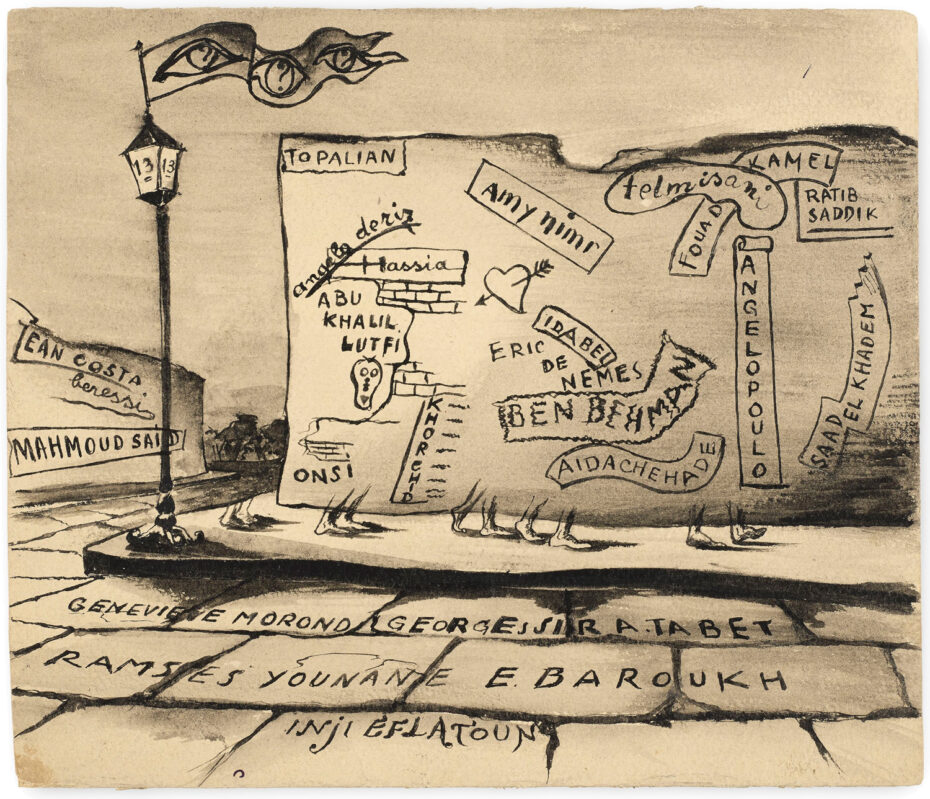 ? ? ?
13 13
TOPALIAN
KAMEL
telmisani
RATIB
SADDIK
Amy nimr
FOUAD
angelo de riz
Hassia
ANGELOPOULO
ABU
KHALIL
LUTFI
IDABEL
ERIC
DE
NEMES
EAN COSTA
beressi
BEN BEHMAN
SAAD EL KHADEM
MAHMOUD SAID
KHORCHID
AIDACHEHADE
ONSI
GENEVIEVE MOROND GEORGESSIR A. TABET
RAMSES YOUNANE E. BAROUKH
INJI EFLATOUN